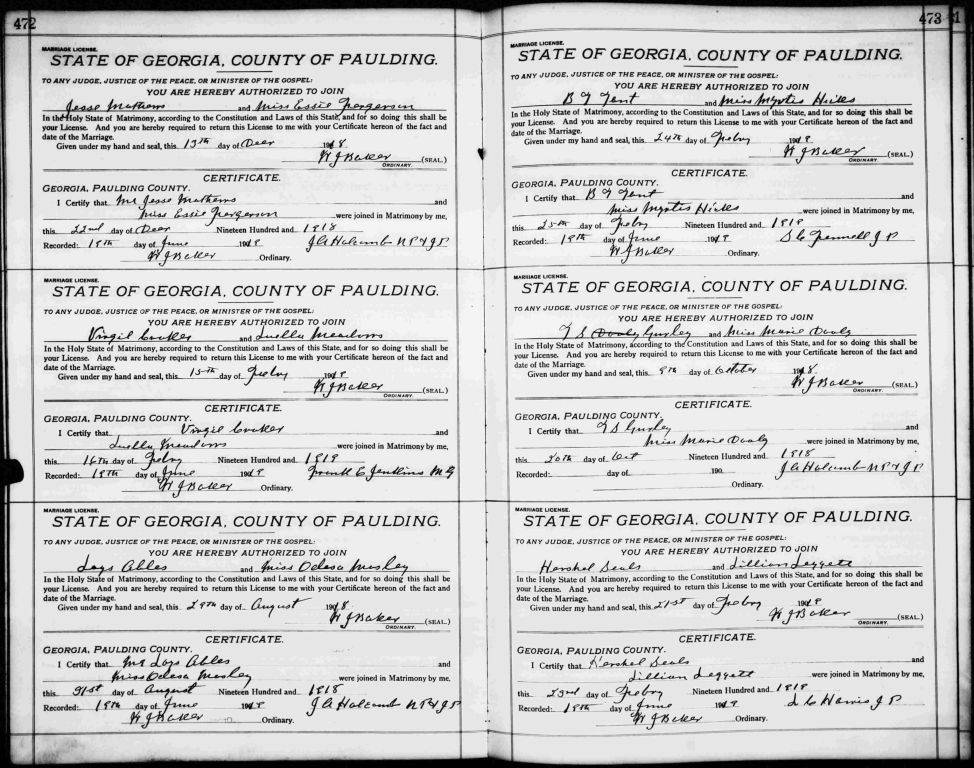 472
MARRIAGE LICENSE.
STATE OF GEORGIA, COUNTY OF PAULDING.
TO ANY JUDGE, JUSTICE OF THE PEACE, OR MINISTER OF THE GOSPEL:
YOU ARE HEREBY AUTHORIZED TO JOIN
Jesse Mathews and Miss Essie Fergerson
In the Holy State of Matrimony, according to the Constitution and Laws of this State, and for so doing this shall be
your License. And you are hereby required to return this License to me with your Certificate hereon of the fact and
date of the Marriage.
Given under my hand and seal, this 13th day of Decr 1918.
W J Baker (SEAL.)
ORDINARY.
CERTIFICATE.
GEORGIA, PAULDING COUNTY.
I Certify that Mr Jesse Mathews and
Miss Essie Fergerson were joined in Matrimony by me,
this 22nd day of Decr Nineteen Hundred and 1918
Recorded: 19th day of June 1919 J A Holcomb N P & J P
W J Baker Ordinary.
MARRIAGE LICENSE.
STATE OF GEORGIA, COUNTY OF PAULDING.
TO ANY JUDGE, JUSTICE OF THE PEACE, OR MINISTER OF THE GOSPEL:
YOU ARE HEREBY AUTHORIZED TO JOIN
Virgil Cooker and Luella Meadows
In the Holy State of Matrimony, according to the Constitution and Laws of this State, and for so doing this shall be
your License. And you are hereby required to return this License to me with your Certificate hereon of the fact and
date of the Marriage.
Given under my hand and seal, this 15th day of Febry 1919
W J Baker (SEAL.)
ORDINARY.
CERTIFICATE.
GEORGIA, PAULDING COUNTY.
I Certify that Virgil Cooker and
Luella Meadows were joined in Matrimony by me,
this 16th day of Febry Nineteen Hundred and 1919
Recorded: 19th day of June 1919 Frank C Jenkins M G
W J Baker Ordinary.
MARRIAGE LICENSE.
STATE OF GEORGIA, COUNTY OF PAULDING.
TO ANY JUDGE, JUSTICE OF THE PEACE, OR MINISTER OF THE GOSPEL:
YOU ARE HEREBY AUTHORIZED TO JOIN
Loys Ables and Miss Odesa Mosley
In the Holy State of Matrimony, according to the Constitution and Laws of this State, and for so doing this shall be
your License. And you are hereby required to return this License to me with your Certificate hereon of the fact and
date of the Marriage.
Given under my hand and seal, this 29th day of August 1918
W J Baker (SEAL.)
ORDINARY.
CERTIFICATE.
GEORGIA, PAULDING COUNTY.
I Certify that Mr Loys Ables and
Miss Odesa Mosley were joined in Matrimony by me,
this 31st day of August Nineteen Hundred and 1918
Recorded: 19th day of June 1919 J A Holcomb N P & J P
W J Baker Ordinary.
473
MARRIAGE LICENSE.
STATE OF GEORGIA, COUNTY OF PAULDING.
TO ANY JUDGE, JUSTICE OF THE PEACE, OR MINISTER OF THE GOSPEL:
YOU ARE HEREBY AUTHORIZED TO JOIN
B F Tent and Miss Myrtis Hicks
In the Holy State of Matrimony, according to the Constitution and Laws of this State, and for so doing this shall be
your License. And you are hereby required to return this License to me with your Certificate hereon of the fact and
date of the Marriage.
Given under my hand and seal, this 24th day of Febry 1919.
W J Baker (SEAL.)
ORDINARY.
CERTIFICATE.
GEORGIA, PAULDING COUNTY.
I Certify that B F Tent and
Miss Myrtis Hicks were joined in Matrimony by me,
this 25th day of Febry Nineteen Hundred and 1919
Recorded: 19th day of June 1919 J P
W J Baker Ordinary.
MARRIAGE LICENSE.
STATE OF GEORGIA, COUNTY OF PAULDING.
TO ANY JUDGE, JUSTICE OF THE PEACE, OR MINISTER OF THE GOSPEL:
YOU ARE HEREBY AUTHORIZED TO JOIN
T S Dooly Gurley and Miss Marie Dooly
In the Holy State of Matrimony, according to the Constitution and Laws of this State, and for so doing this shall be
your License. And you are hereby required to return this License to me with your Certificate hereon of the fact and
date of the Marriage.
Given under my hand and seal, this 9th day of October 1918.
W J Baker (SEAL.)
ORDINARY.
CERTIFICATE.
GEORGIA, PAULDING COUNTY.
I Certify that T S Gurley and
Miss Marie Dooly were joined in Matrimony by me,
this 20th day of Oct Nineteen Hundred and 1918
Recorded: day of 190 J A Holcomb N P & J P
Ordinary.
MARRIAGE LICENSE.
STATE OF GEORGIA, COUNTY OF PAULDING.
TO ANY JUDGE, JUSTICE OF THE PEACE, OR MINISTER OF THE GOSPEL:
YOU ARE HEREBY AUTHORIZED TO JOIN
Hershel Seals and Lillian Leggett
In the Holy State of Matrimony, according to the Constitution and Laws of this State, and for so doing this shall be
your License. And you are hereby required to return this License to me with your Certificate hereon of the fact and
date of the Marriage.
Given under my hand and seal, this 21st day of Febry 1919
W J Baker (SEAL.)
ORDINARY.
CERTIFICATE.
GEORGIA, PAULDING COUNTY.
I Certify that Hershel Seals and
Lillian Leggett were joined in Matrimony by me,
this 23rd day of Febry Nineteen Hundred and 1919
Recorded: 19th day of June 1919 L C Harris J P
W J Baker Ordinary.